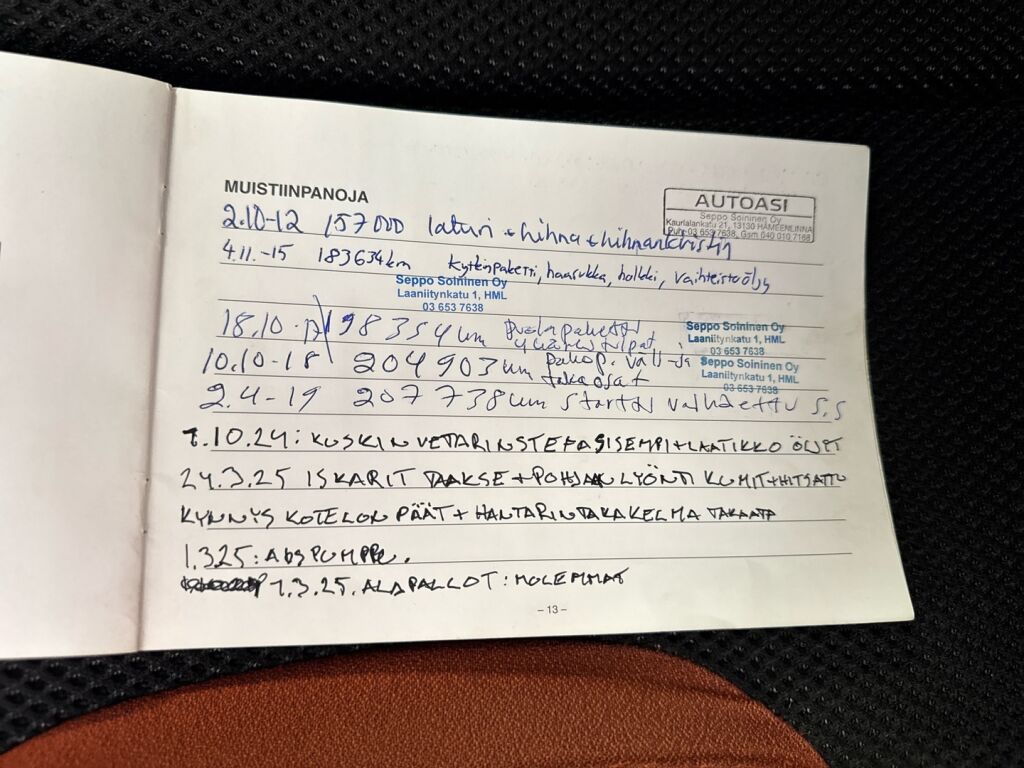 MUISTIINPANOJA
AUTOASI
Seppo Soininen Oy
Kaurialankatu 21, 13130 HÄMEENLINNA
Puh. 03 653 7638, Gsm 040 010 7168
2.10-12 157000 laturi + hihna + hihnankiristin
4.11.-15 183634km kytkinpaketti, haarukka, holkki, vaihteistoöljy
Seppo Soininen Oy
Laaniitynkatu 1, HML
03 653 7638
18.10 198354 km
Seppo Soininen Oy
Laaniitynkatu 1, HML
03 653 7638
10.10-18 204903 km pakop. väli- ja
takaosat
Seppo Soininen Oy
Laaniitynkatu 1, HML
03 653 7638
2.4-19 207738 km startti vaihdettu S.S
.10.24: KUSKIN VETARIN SISEMPI + LAATIKKO ÖLJYT
24.3.25 ISKARIT TAAKSE + POHJAAN LYÖNTI KUMIT + HITSATTU
KYNNYS KOTELON PÄÄT + TAKAATA
1.3.25: ABS PUMPPU.
1.3.25. ALAPALLOT: MOLEMMAT
– 13 –